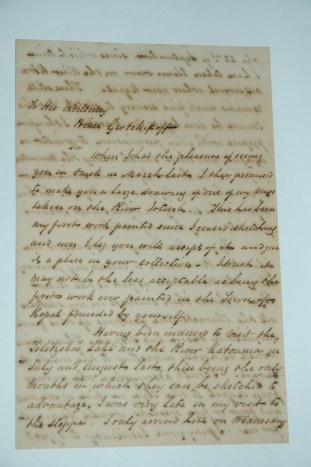 To His Excellency
Prince Gortchikoff
Sir
When I had the pleasure of seeing
you in Omsk in March last, I then promised
to make you a large drawing of one of my
taken on the River Irtish. This has been
my first work painted since I ceased sketching
and now I beg you will accept of it and give
it a place in your collection. I trust it
may not be the less acceptable as being the
first work ever painted in the Town of
Kopal founded by yourself.
Having been induced to visit the
Lake and the River in
July and August last, this being the only
months in which they can be sketched to
advantage, I was very late in my visit to
the Steppe. I only arrived here on Wednesday